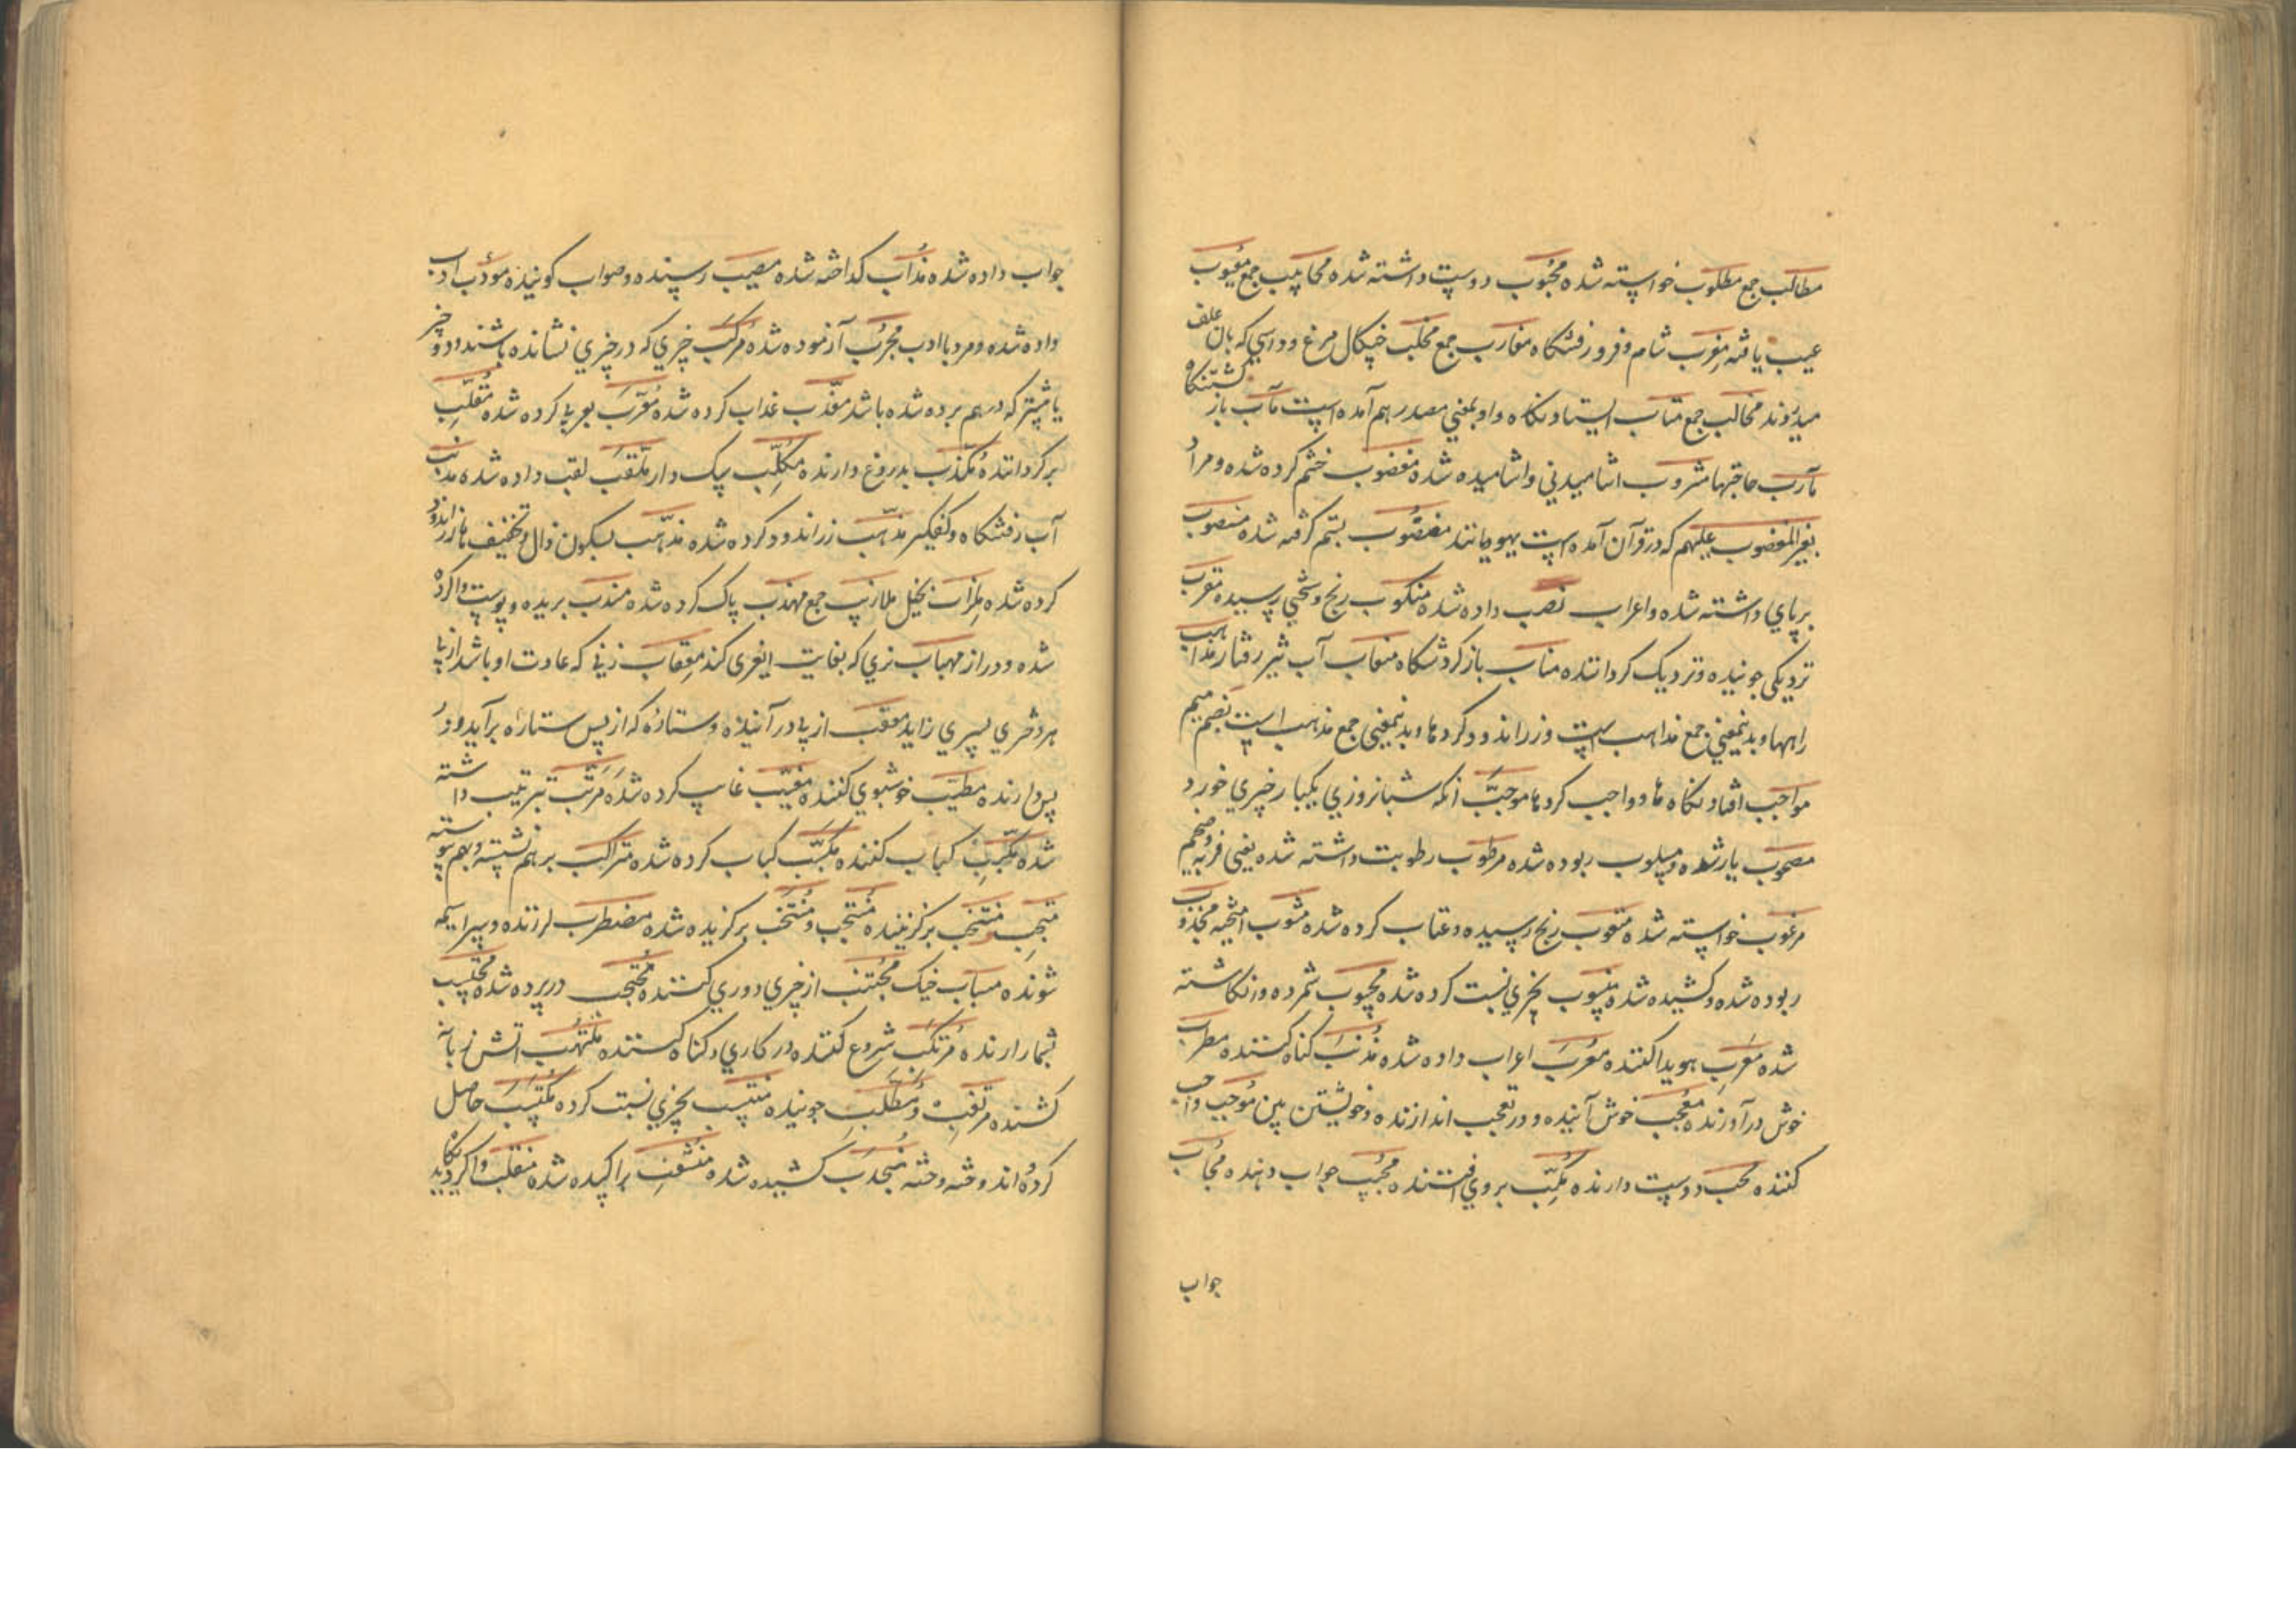 مطالب جمع مطلوب خواسته شده محبوب دوست داشته شده محابیب جمع معیوب
عیب یافته مغرب شام و فروزفتنکاه مغارب جمع مخلب چنکال مرغ و داسی که بان علف
میدروند مخالب جمع مثاب ایستادنکاه و او بمعنی مصدر هم آمده است مآب باز کشتنکاه
مآرب حاجتها مشروب اشامیدنی و اشامیده شده مغضوب خشم کرده شده و مراد
بغیر المغضوب علیهم که در قرآن آمده است یهودیانند مغصوب بستم کرفته شده منصوب
برپای داشته شده و اعراب نصب داده شده منکوب رنج و سختی رسیده مقرب
نزدیکی جوینده و نزدیک کرداننده مناب باز کردشنکاه منعاب آب تیز رفتار مذاهب
راهها و بدینمعنی جمع مذاهب است و زراندود کردها و بدینمعنی جمع مذهب است بضم میم
مواجب افتادنکاه ها و واجب کردها موجب انکه شبانروزی یکبار چیزی خورد
مصحوب یار شده مسلوب ربوده شده مرطوب رطوبت داشته شده یعنی فربه و ضخیم
مرغوب خواسته شده متعوب رنج رسیده و عتاب کرده شده مشوب امیخته مجذوب
ربوده شده و کشیده شده منسوب بچیزی نسبت کرده شده محسوب شمرده و زنکاشته
شده معرب هویدا کننده معرب اعراب داده شده مذنب کناه کننده مطرب
خوش درآورنده معجب خوش آینده و در تعجب اندازنده و خویشتن بین موجب واجب
کننده محب دوست دارنده مکب بروی افتنده مجیب جواب دهنده مجاب
جواب
جواب داده شده مذاب کداخته شده مصیب رسنده و صواب کوینده مؤدب ادب
داده شده و مرد با ادب مجرب آزموده شده مرکب چیزی که در چیزی نشانده باشند و دو چیز
یا بیشتر که در هم برده شده باشد معذب عذاب کرده شده معرب بعربی کرده شده مقلب
برکرداننده مکذب بدروغ دارنده مکلب سک دار ملقب لقب داده شده مذنب
آب رفتنکاه و کفکیر مذهب زراندود کرده شده مذهب بسکون ذال و تخفیف ها زراندود
کرده شده ملزاب بخیل ملازیب جمع مهذب پاک کرده شده مشذب بریده و پوست واکرده
شده و دراز مهباب نری که بغایت ایغری کند معقاب زنی که عادت او باشد از پی
هر دختری پسری زاید معقب از پی درآینده و ستاره که از پس ستاره برآید و در
پس دارنده مطیب خوشبوی کننده مغیب غایب کرده شده مرتب ترتیب داشته
شده مکبب کباب کننده مکبب کباب کرده شده متراکب بر هم نشسته و بهم پیوسته
منتجب و منتخب برکزیننده منتجب و منتخب برکزیده شده مضطرب لرزنده و سراسیمه
شونده مساب خیک مجتنب از چیزی دوری کننده محتجب در پرده شده محتسب
شمار آرنده مرتکب شروع کننده در کاری و کناه کننده ملتهب آتش زبانه
کشنده مرتقب و مطلب جوینده منتسب بچیزی نسبت کرده مکتسب حاصل
کرده و اندوخته و خته منجذب کشیده شده منشعب پراکنده شده منقلب واکردیدنکاه